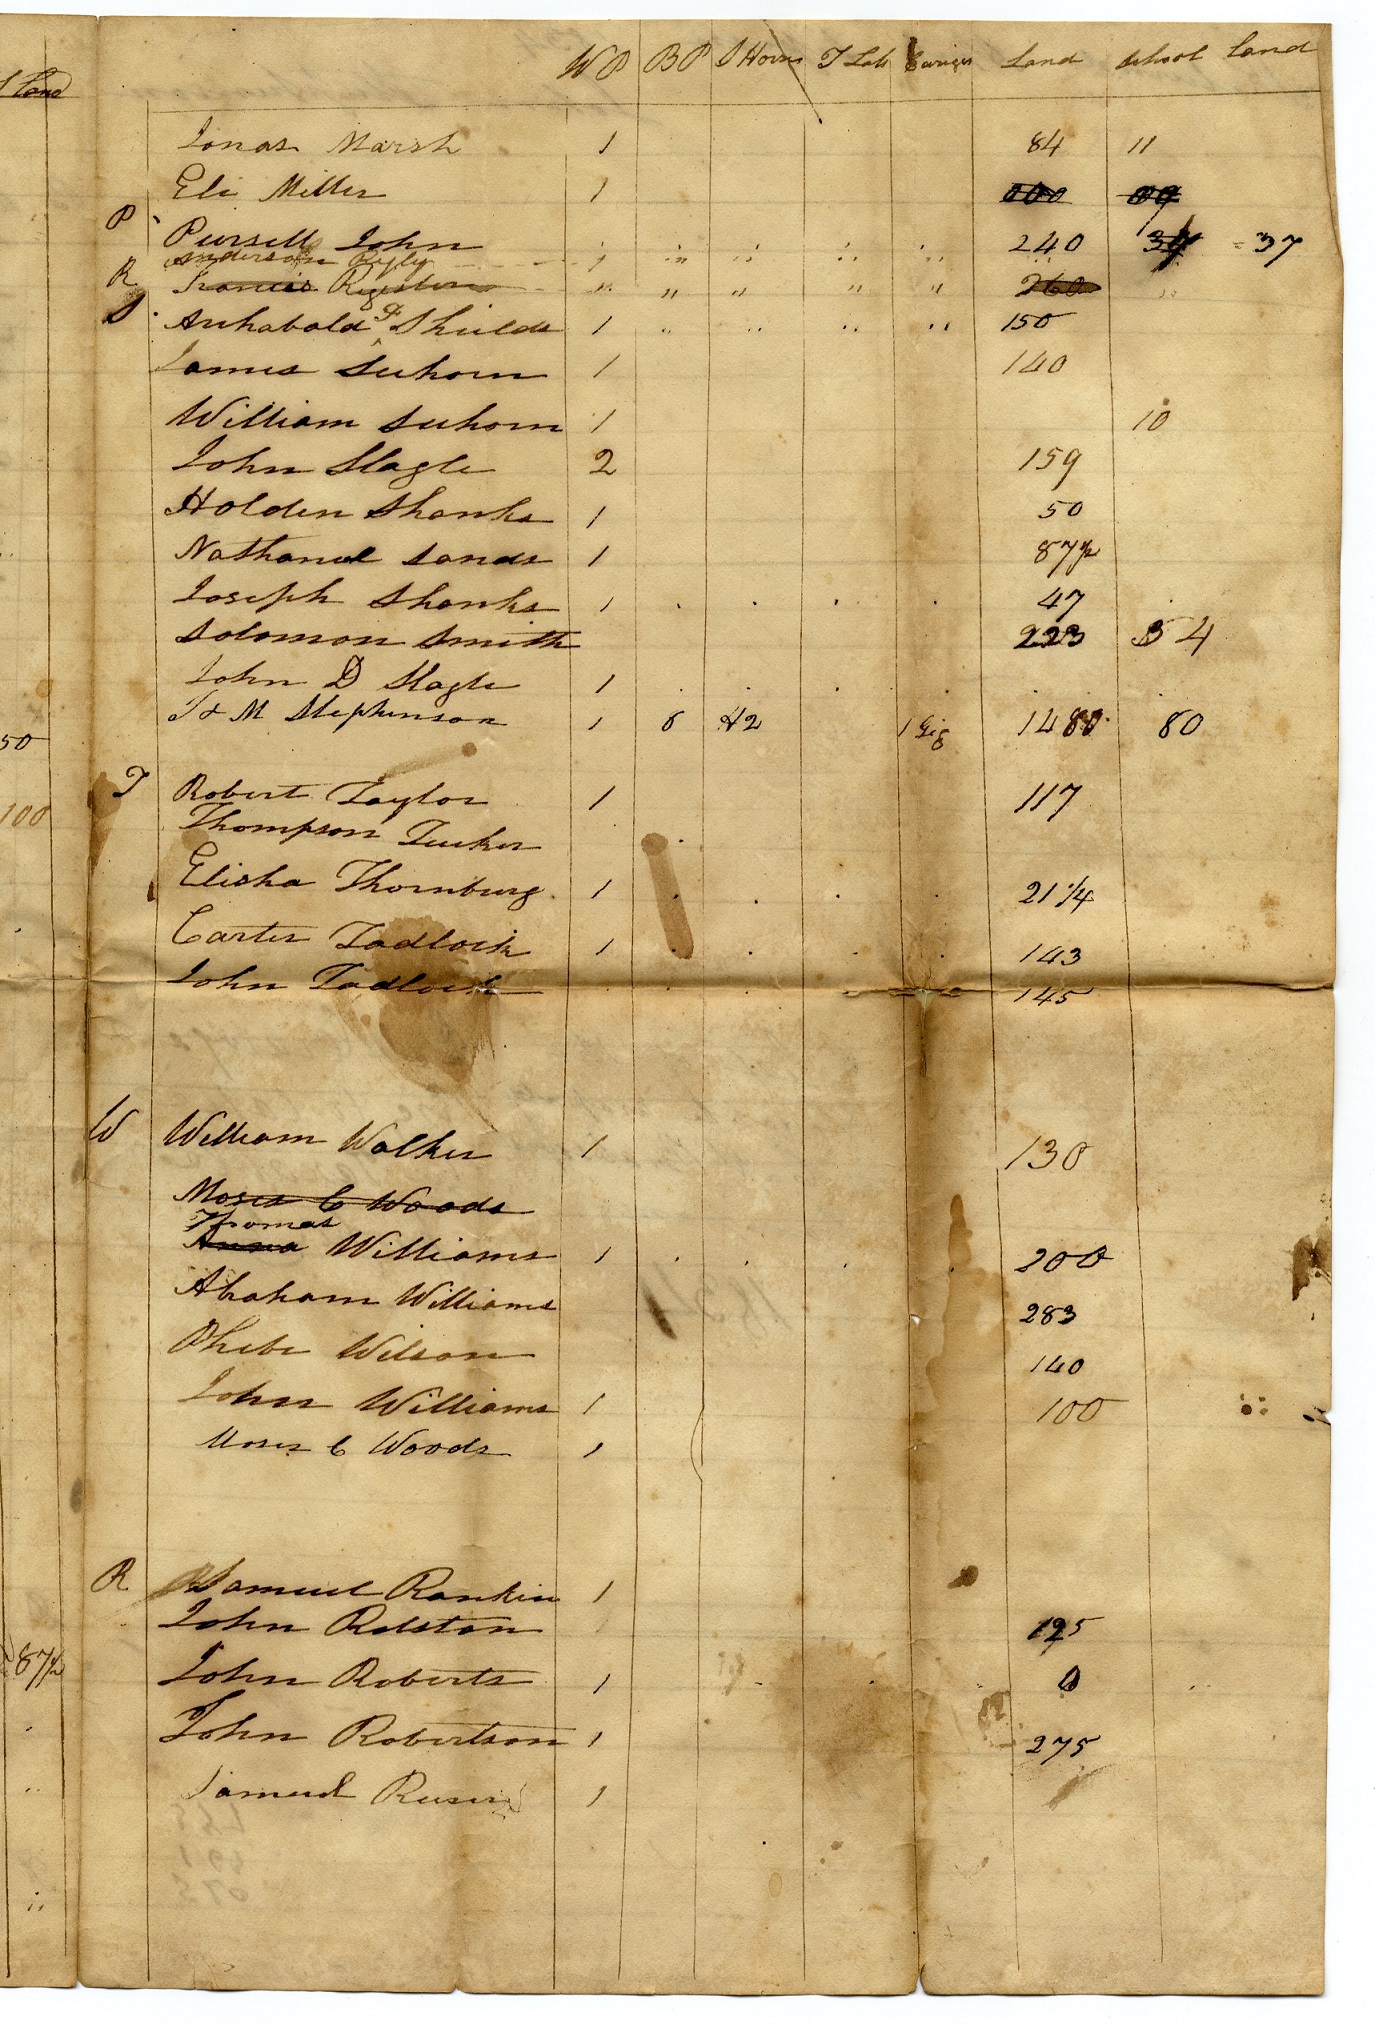 land
W P B P S Hors T Lots Carriges Land School land
Jonas Marsh 1 84 11
Eli Miller 1
P Pursell John 240 = 37
Anderson Ryly 1
R Francis Register 260
S Archabald F Shields 1 150
James Seehorn 1 140
William Seehorn 1 10
John Slagle 2 159
Holden Shanks 1 50
Nathaniel Sands 1 87½
50
Joseph Shanks 1 47
Solomon Smith 223 54
John D Slagle 1
T & M Stephenson 1 6 H2 1 Gig 1480 80
T Robert Taylor 1 117
100
Thompson Tucker
Elisha Thornburg 1 21 1/4
Carter Tadlock 1 143
John Tadlock 145
W William Walker 1 130
Moses C Woods
Thomas
Anna Williams 1 200
Abraham Williams 283
Phebe Wilson 140
John Williams 1 100
Moses C Woods 1
R Samuel Rankin 1
John Rolston 125
87½
John Roberts 1 0
John Robertson 1 275
Samuel 1